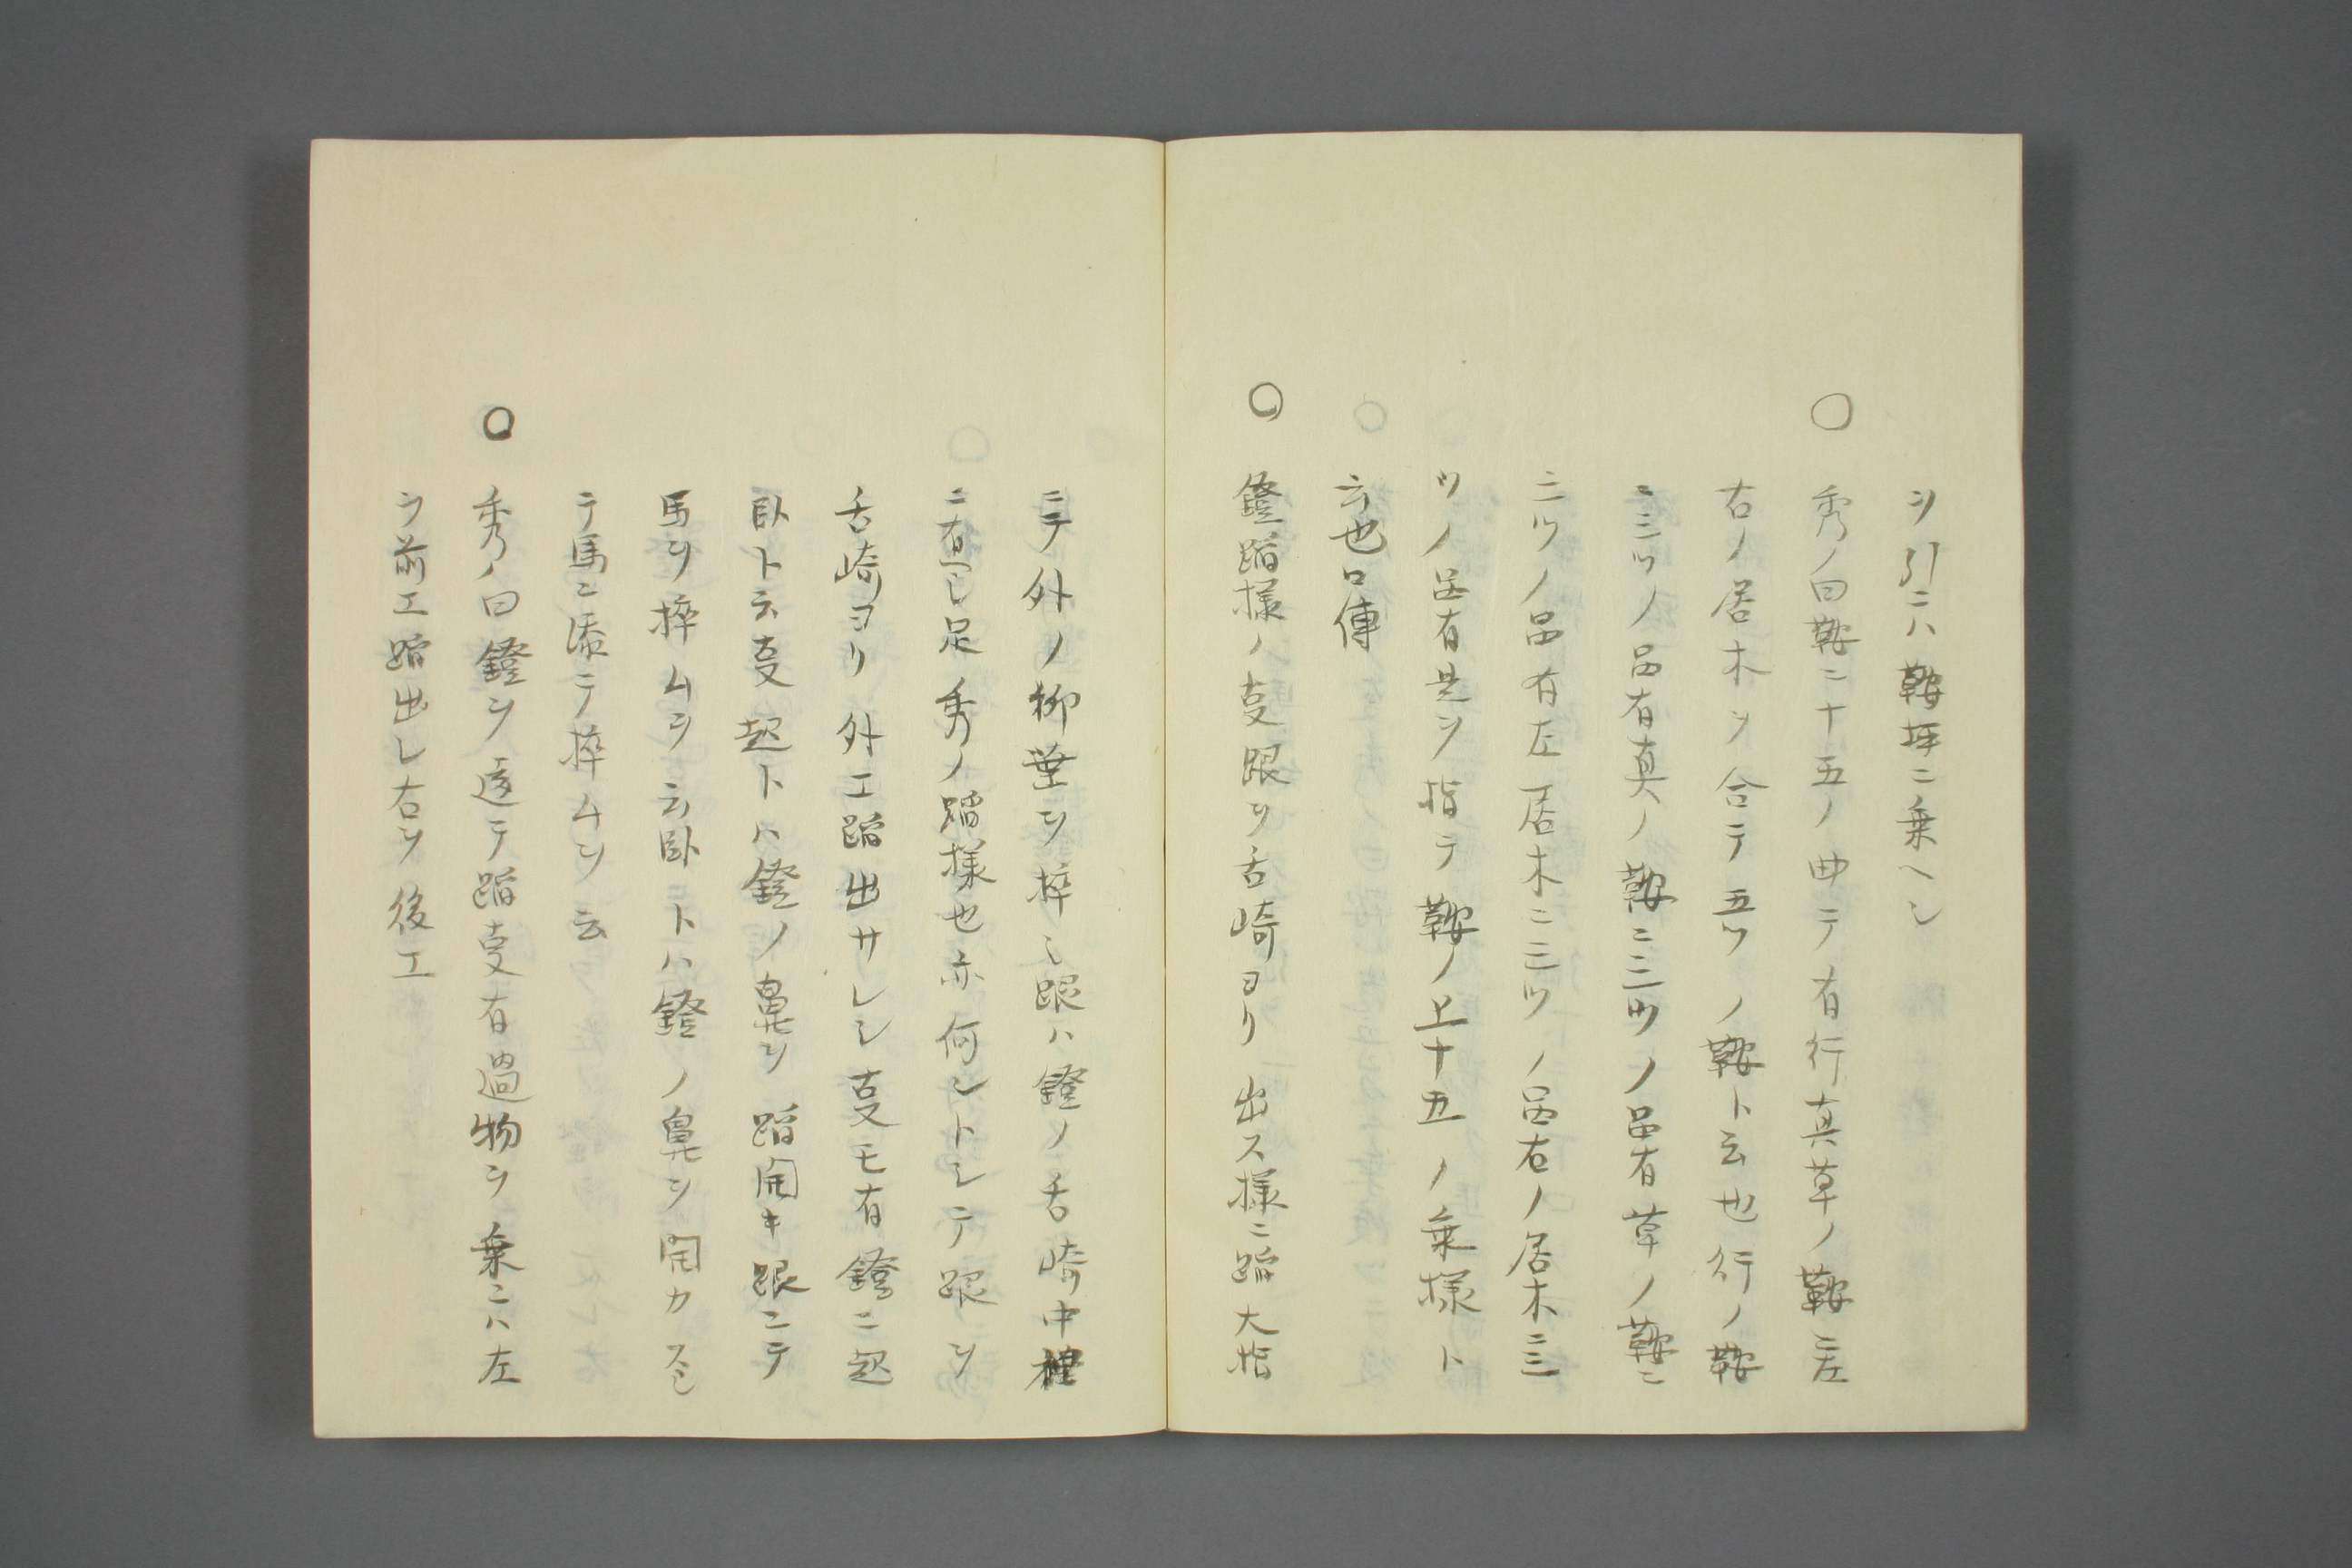 ヲ引ニハ鞍坪ニ乗ヘシ
○ 秀ノ曰鞍ニ十五ノ曲テ有行真草ノ鞍ニ左
右ノ居木ヲ合テ五ツノ鞍ト云也行ノ鞍
ニ三ツノ品有真ノ鞍ニ三ツノ品有草ノ鞍ニ
三ツノ品有左居木ニ三ツノ品右ノ居木ニ三
ツノ品有是ヲ指テ鞍ノ上十五ノ乗様ト
云也口傳
○ 鐙蹈様ノ叓跟ヲ舌崎ヨリ出ス様ニ蹈大指
ニテ外ノ柳葉ヲ捽ミ跟ハ鐙ノ舌崎中程
ニ有へし足秀ノ蹈様也亦何ントシテ跟ヲ
舌崎ヨリ外エ蹈出サレシ叓モ有鐙ニ起
臥ト云叓起トハ鐙ノ鼻ヲ蹈開キ跟ニテ
馬ヲ捽ムヲ云臥トハ鐙ノ鼻ヲ開カスシ
テ馬ニ添テ捽ムヲ云
○ 秀ノ曰鐙ヲ違テ蹈叓有過物ヲ乗ニハ左
ヲ前エ蹈出レ右ヲ後エ